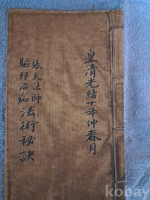 皇清光緒十年仲春月
張天法師
驅邪治病法術秘訣
kobay